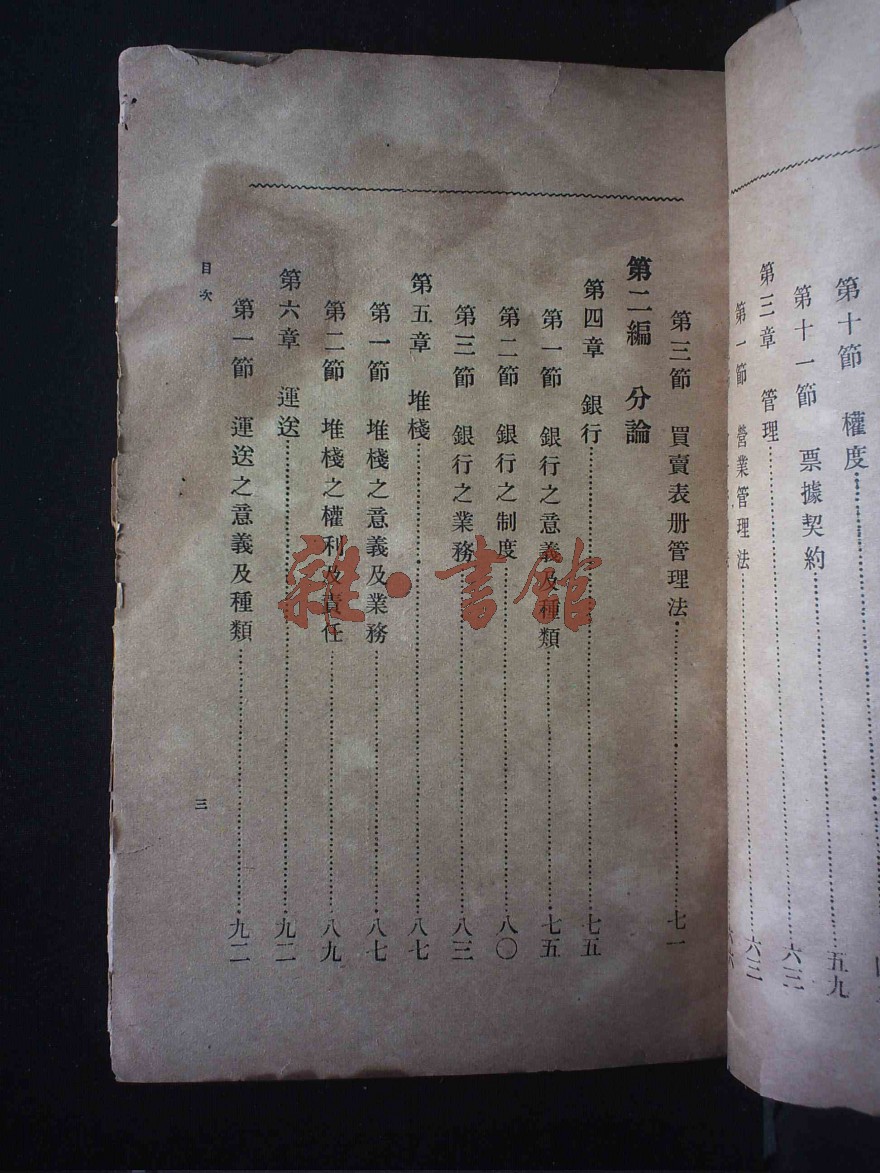 第十節　權度……五九
第十一節　票據契約……六三
第三章　管理……六三
第一節　營業管理法……六六
第三節　買賣表册管理法……七一
第二編　分論
第四章　銀行……七五
第一節　銀行之意義及種類……七五
第二節　銀行之制度……八〇
第三節　銀行之業務……八三
第五章　堆棧……八七
第一節　堆棧之意義及業務……八七
第二節　堆棧之權利及責任……八九
第六章　運送……九二
第一節　運送之意義及種類……九二
目次
三
雜·書館